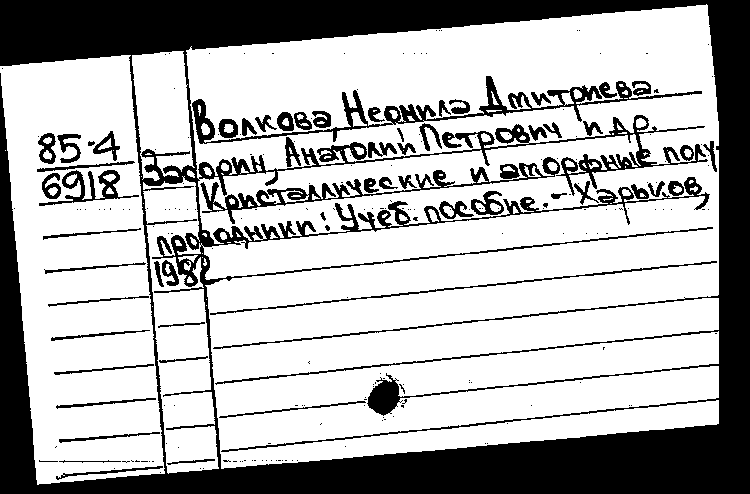 Волкова, Неонила Дмитриева.
85-4
6918
Засорин, Анатолий Петрович и др.
Кристаллические и аморфные полу-
проводники: Учеб. пособие. - Харьков,
1982.